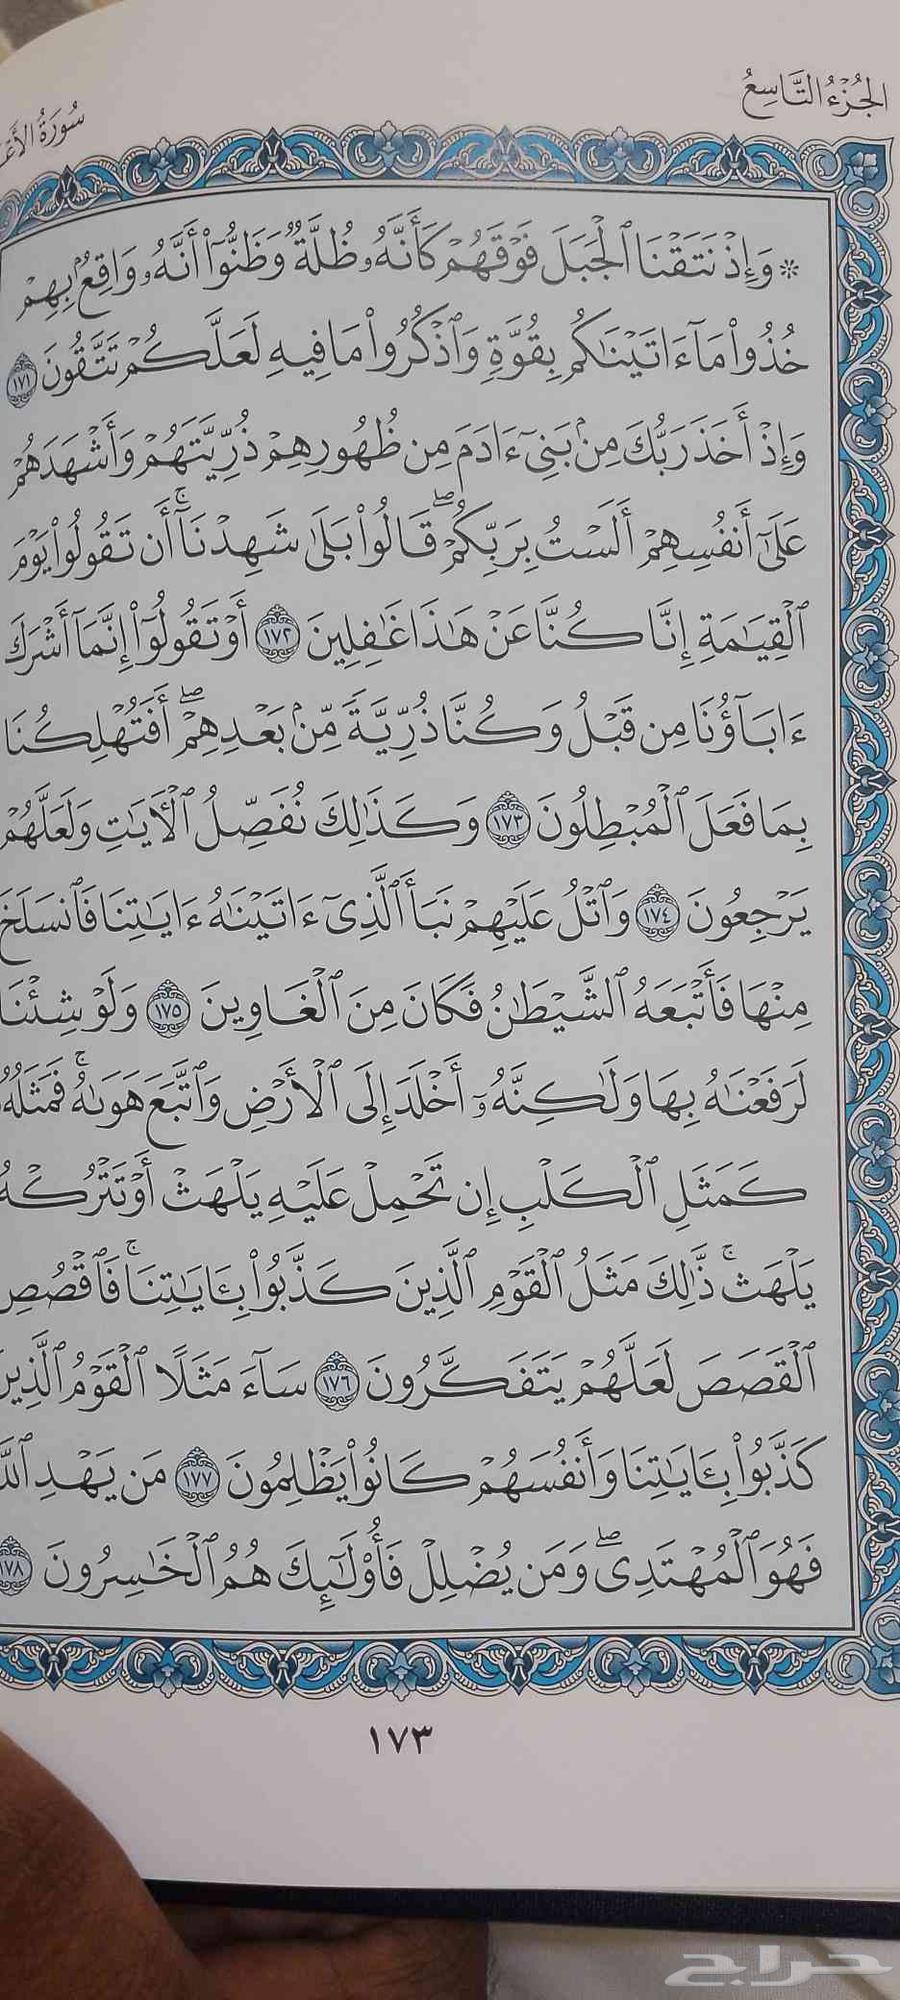 الجُزْءُ التَّاسِعُ
سُورَةُ الأَعْ
۞ وَإِذْ نَتَقْنَا ٱلْجَبَلَ فَوْقَهُمْ كَأَنَّهُۥ ظُلَّةٌ وَظَنُّوٓا۟ أَنَّهُۥ وَاقِعٌۢ بِهِمْ
خُذُوا۟ مَآ ءَاتَيْنَٰكُم بِقُوَّةٍ وَٱذْكُرُوا۟ مَا فِيهِ لَعَلَّكُمْ تَتَّقُونَ ١٧١
وَإِذْ أَخَذَ رَبُّكَ مِنۢ بَنِىٓ ءَادَمَ مِن ظُهُورِهِمْ ذُرِّيَّتَهُمْ وَأَشْهَدَهُمْ
عَلَىٰٓ أَنفُسِهِمْ أَلَسْتُ بِرَبِّكُمْ ۖ قَالُوا۟ بَلَىٰ شَهِدْنَآ ۚ أَن تَقُولُوا۟ يَوْمَ
ٱلْقِيَٰمَةِ إِنَّا كُنَّا عَنْ هَٰذَا غَٰفِلِينَ ١٧٢ أَوْ تَقُولُوٓا۟ إِنَّمَآ أَشْرَكَ
ءَابَآؤُنَا مِن قَبْلُ وَكُنَّا ذُرِّيَّةً مِّنۢ بَعْدِهِمْ ۖ أَفَتُهْلِكُنَا
بِمَا فَعَلَ ٱلْمُبْطِلُونَ ١٧٣ وَكَذَٰلِكَ نُفَصِّلُ ٱلْءَايَٰتِ وَلَعَلَّهُمْ
يَرْجِعُونَ ١٧٤ وَٱتْلُ عَلَيْهِمْ نَبَأَ ٱلَّذِىٓ ءَاتَيْنَٰهُ ءَايَٰتِنَا فَٱنسَلَخَ
مِنْهَا فَأَتْبَعَهُ ٱلشَّيْطَٰنُ فَكَانَ مِنَ ٱلْغَاوِينَ ١٧٥ وَلَوْ شِئْنَا
لَرَفَعْنَٰهُ بِهَا وَلَٰكِنَّهُۥٓ أَخْلَدَ إِلَى ٱلْأَرْضِ وَٱتَّبَعَ هَوَىٰهُ ۚ فَمَثَلُهُۥ
كَمَثَلِ ٱلْكَلْبِ إِن تَحْمِلْ عَلَيْهِ يَلْهَثْ أَوْ تَتْرُكْهُ
يَلْهَث ۚ ذَّٰلِكَ مَثَلُ ٱلْقَوْمِ ٱلَّذِينَ كَذَّبُوا۟ بِـَٔايَٰتِنَا ۚ فَٱقْصُصِ
ٱلْقَصَصَ لَعَلَّهُمْ يَتَفَكَّرُونَ ١٧٦ سَآءَ مَثَلًا ٱلْقَوْمُ ٱلَّذِينَ
كَذَّبُوا۟ بِـَٔايَٰتِنَا وَأَنفُسَهُمْ كَانُوا۟ يَظْلِمُونَ ١٧٧ مَن يَهْدِ ٱللَّهُ
فَهُوَ ٱلْمُهْتَدِى ۖ وَمَن يُضْلِلْ فَأُو۟لَٰٓئِكَ هُمُ ٱلْخَٰسِرُونَ ١٧٨
١٧٣
حراج